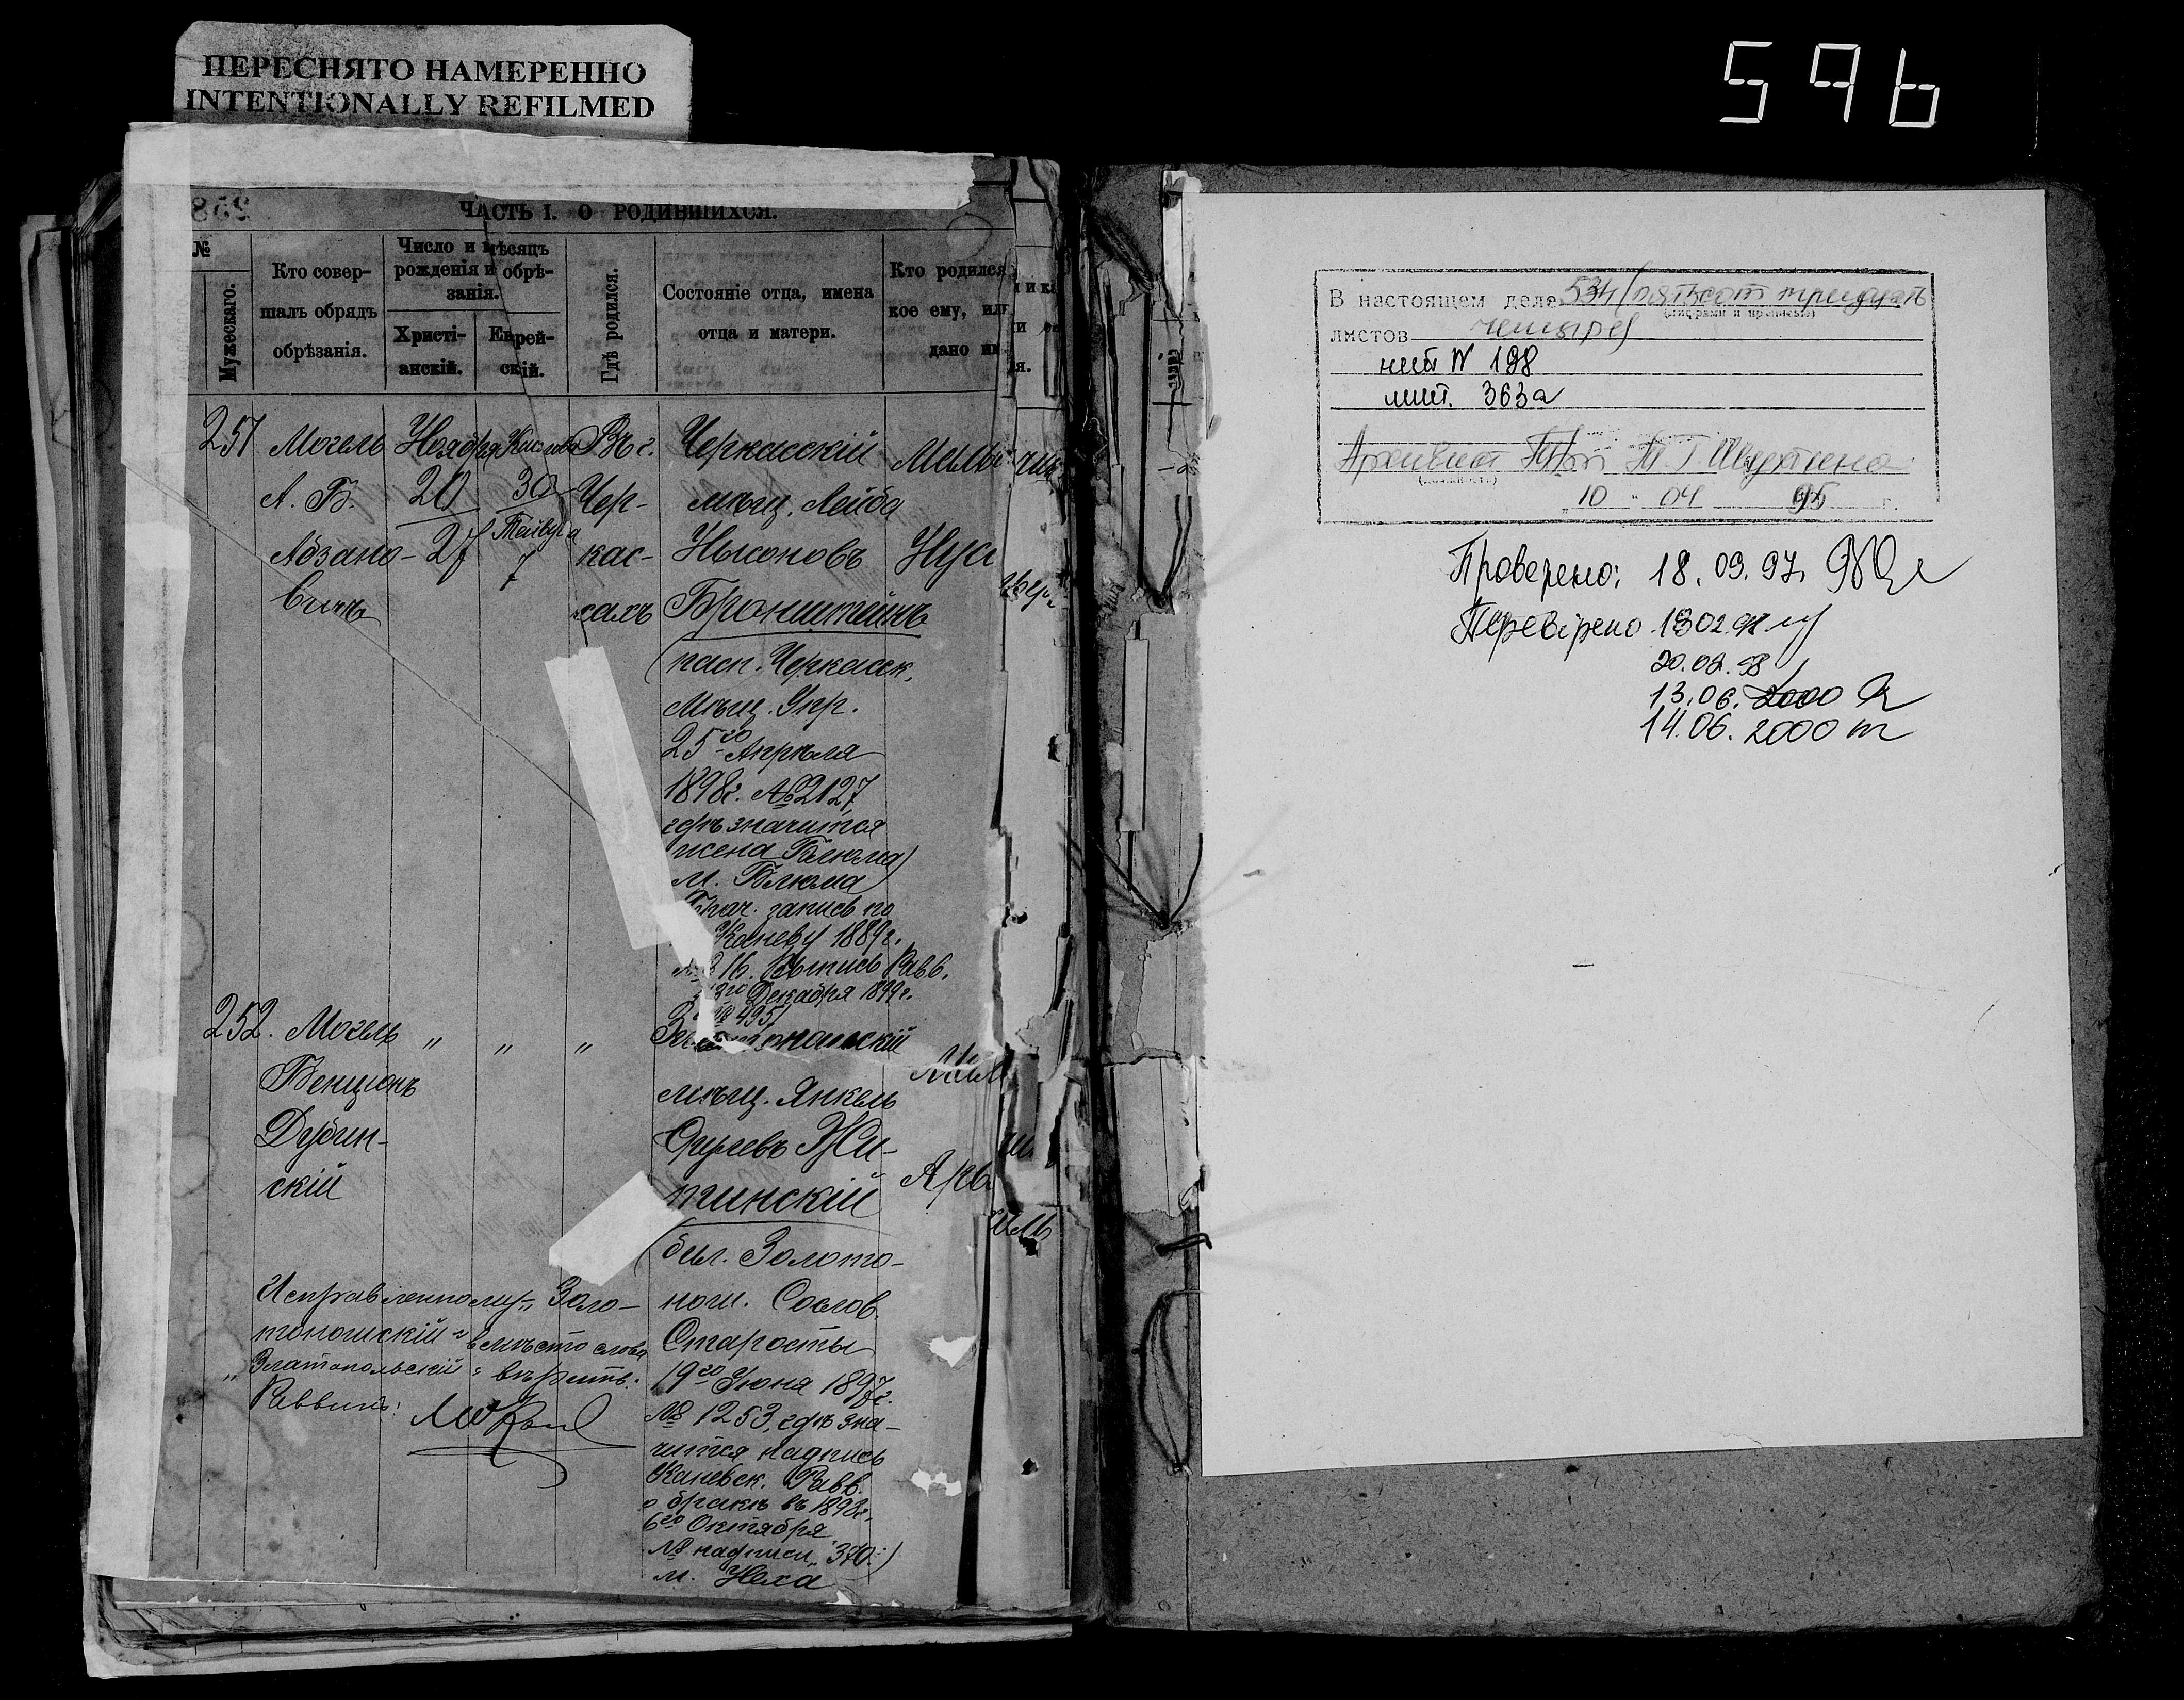 ПЕРЕСНЯТО НАМЕРЕННО
INTENTIONALLY REFILMED
596
ЧАСТЬ I. О РОДИВШИХСЯ.
№
Мужескаго.
Кто совер-
шалъ обрядъ
обрѣзанія.
Число и мѣсяцъ
рожденія и обрѣ-
занія.
Христі-
анскій.
Еврей-
скій.
Гдѣ родился.
Состояніе отца, имена
отца и матери.
Кто родился
кое ему, или
дано им
251
Могель
А. Б.
Абзано-
вичъ
Ноября
20
27
Кислева
30
Тейвуса
7
Въ г.
Чер-
кас-
сахъ
Черкасскій
мѣщ. Лейба
Нысоновъ
Бронштейнъ
(пасп. Черкасск.
Мѣщ. Упр.
25го Апрѣля
1898г. №2127,
гдѣ значится
жена Блюма)
м. Блюма
Брач. запись по
Каневу 1889г.
№ 16. Выпись Равв.
Декабря 1899г.
№ 4951
Нус
252.
Могель
Бенціонъ
Дубин-
скій
„ „ „
Золотоношскій
мѣщ. Янкель
Жи-
тинскій
(бил. Золото-
нош. Сослов.
Старосты
19го Іюня 1897г.
№ 1253, гдѣ зна-
чится надпись
Каневск. Равв.
о бракѣ въ 1893г.
6го Октября
№ надписи 370.)
м. Неха
Исправленному „Золо-
тоношскій“ вмѣсто слова
„Златопольскій“ вѣрить.
Раввинъ:
В настоящем деле 534 (пятьсот тридцать
(цифрами и прописью)
листов четыре)
лит N 198
лит. 363а
Архивист
(должность)
10 " 04 95 г.
Проверено: 18.09.97.
Перевірено 13 02 98
20.02.98
13.06. 2000
14.06. 2000